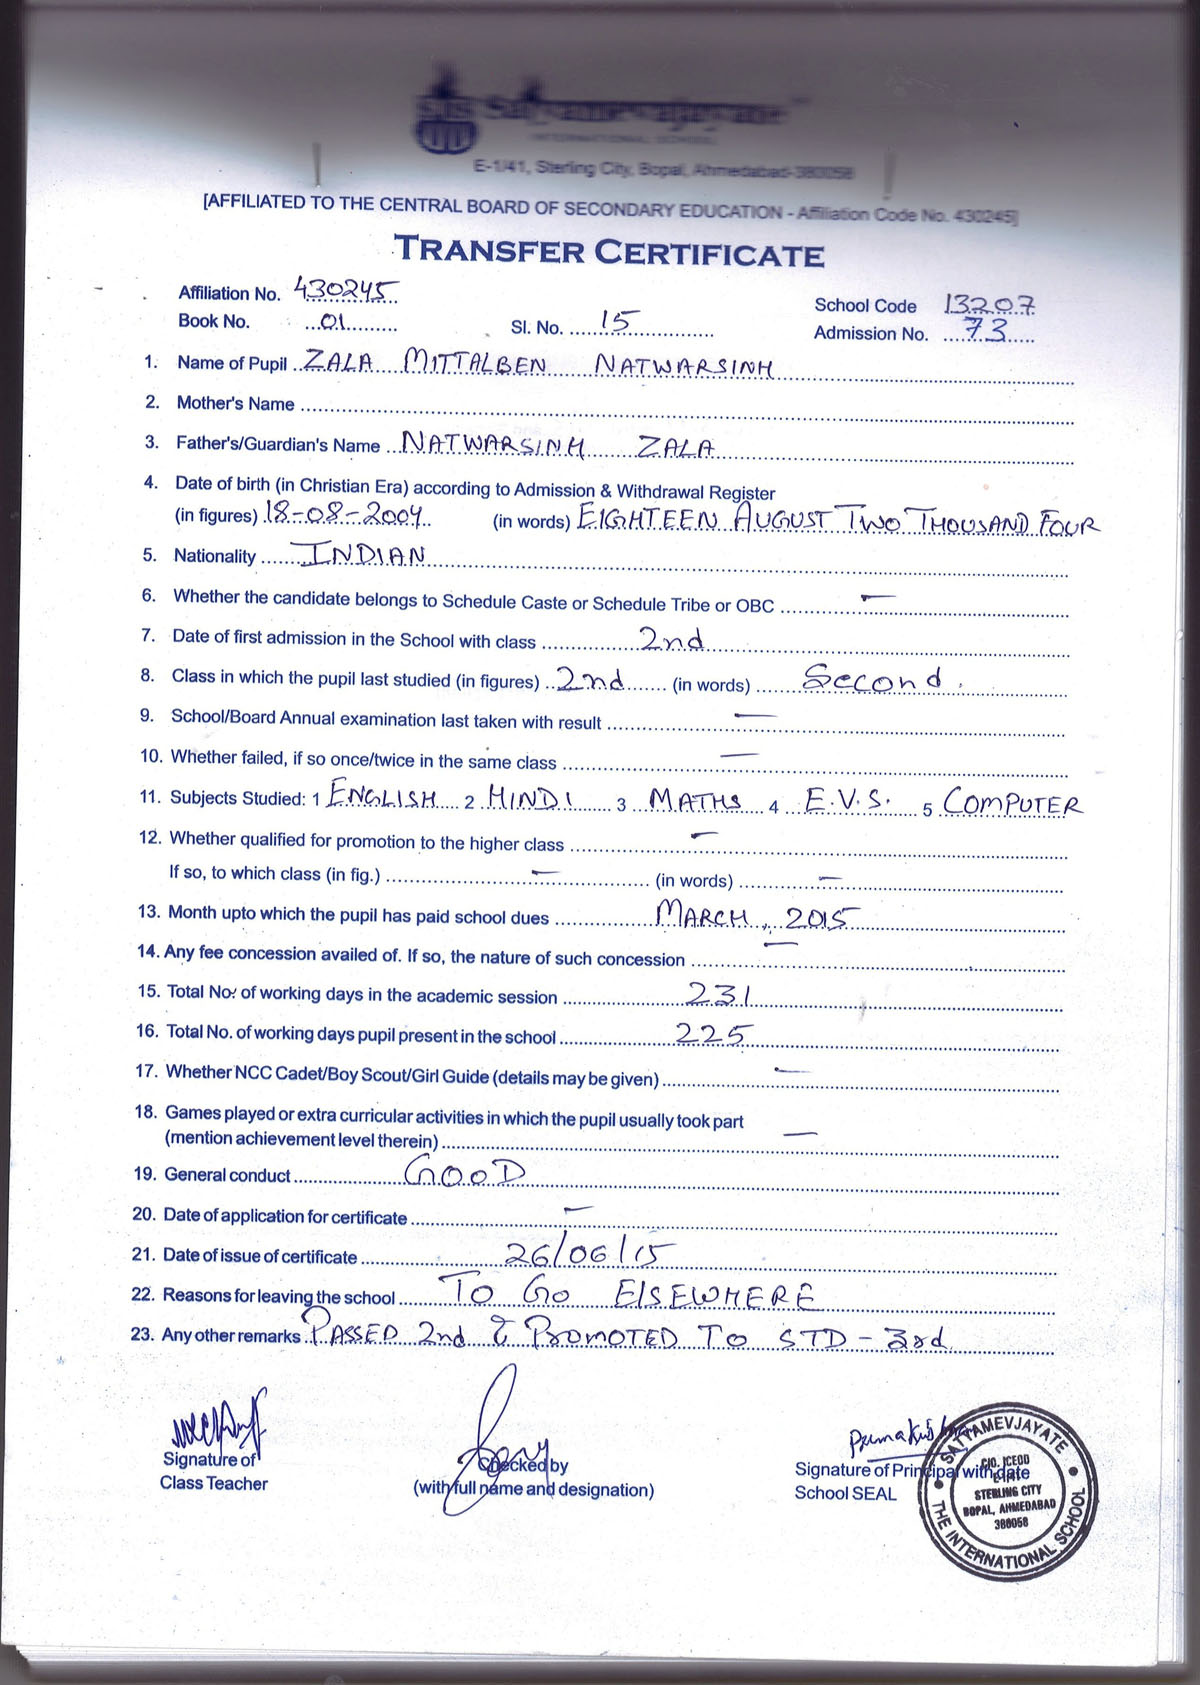 SIS Satyamevajayate
INTERNATIONAL SCHOOL
E-1/41, Sterling City, Bopal, Ahmedabad-380058
[AFFILIATED TO THE CENTRAL BOARD OF SECONDARY EDUCATION - Affiliation Code No. 430245]
TRANSFER CERTIFICATE
Affiliation No. 430245 School Code 13207
Book No. 01 Sl. No. 15 Admission No. 73
1. Name of Pupil ZALA MITTALBEN NATWARSINH
2. Mother's Name
3. Father's/Guardian's Name NATWARSINH ZALA
4. Date of birth (in Christian Era) according to Admission & Withdrawal Register
(in figures) 18-08-2004 (in words) EIGHTEEN AUGUST TWO THOUSAND FOUR
5. Nationality INDIAN
6. Whether the candidate belongs to Schedule Caste or Schedule Tribe or OBC —
7. Date of first admission in the School with class 2nd
8. Class in which the pupil last studied (in figures) 2nd (in words) Second.
9. School/Board Annual examination last taken with result —
10. Whether failed, if so once/twice in the same class —
11. Subjects Studied: 1 ENGLISH 2 HINDI 3 MATHS 4 E.V.S. 5 COMPUTER
12. Whether qualified for promotion to the higher class —
If so, to which class (in fig.) — (in words) —
13. Month upto which the pupil has paid school dues MARCH, 2015
14. Any fee concession availed of. If so, the nature of such concession —
15. Total No. of working days in the academic session 231
16. Total No. of working days pupil present in the school 225
17. Whether NCC Cadet/Boy Scout/Girl Guide (details may be given) —
18. Games played or extra curricular activities in which the pupil usually took part
(mention achievement level therein) —
19. General conduct GOOD
20. Date of application for certificate —
21. Date of issue of certificate 26/06/15
22. Reasons for leaving the school TO GO ElSEWHERE
23. Any other remarks PASSED 2nd & PROMOTED TO STD - 3rd
Signature of
Class Teacher
Checked by
(with full name and designation)
Signature of Principal with date
School SEAL
SATYAMEVJAYATE
THE INTERNATIONAL SCHOOL
STERLING CITY
BOPAL, AHMEDABAD
380058